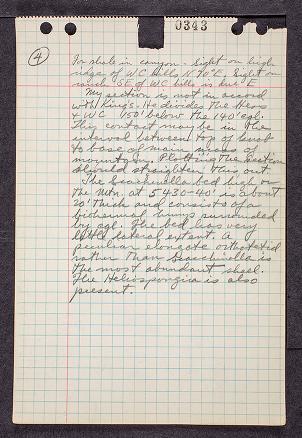 0343
4
For shale in canyon - sight on high
ridge of WC hills N 70°E. Sight on
ranch SE of WC hills is due E
My section is not in accord
with King's. He divides the Hess
& WC 150' below the 140' cgl.
This contact may be in the
interval between top of knob
to base of main mass of
mountain. Plotting the section
should straighten this out.
The Scacchinella bed high on
the Mtn. at 5430-40± is about
20' thick and consists of a
biohermal lump surrounded
by cgl. The bed has very
little lateral extent. A
peculiar elongate orthotetid
rather than Scacchinella is
the most abundant shell.
The Heliospongia is also
present.